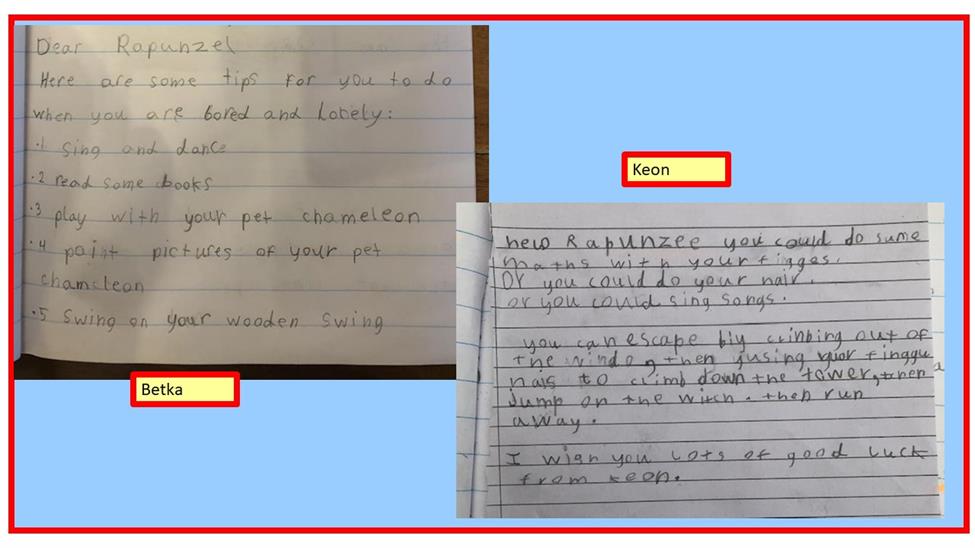 Dear Rapunzel
Here are some tips for you to do
when you are bored and Lonely:
.1 Sing and dance
.2 read some books
.3 play with your pet chameleon
.4 paint pictures of your pet
chameleon
.5 Swing on your wooden swing
Betka
Keon
helo Rapunzee you could do sume
maths with your figges.
Or you could do your hair.
or you could sing songs.
you can escape biy climbing out of
the windo, then yusing your finggu
nails to climb down the tower, then
Jump on the witch. then run
away.
I wish you Lots of good Luck
from keon.